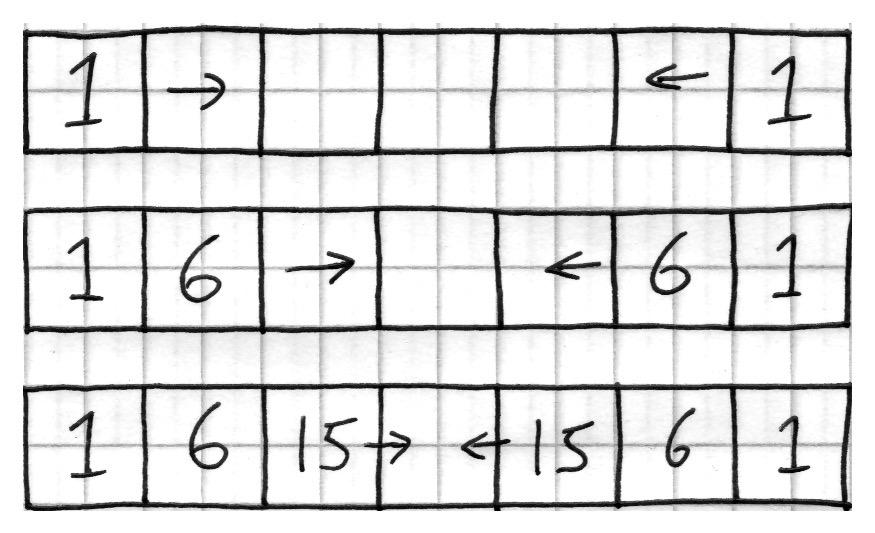 1 → ← 1
1 6 → ← 6 1
1 6 15 → ← 15 6 1